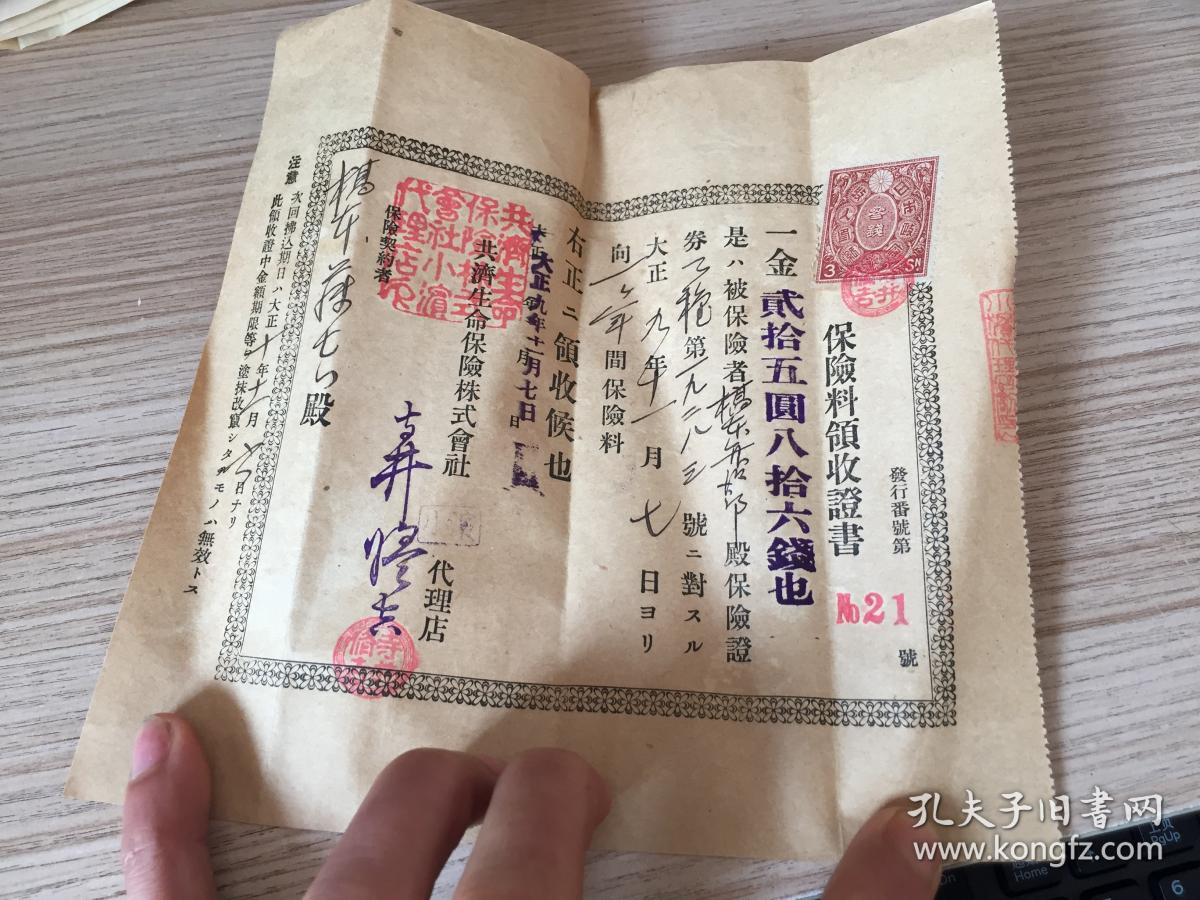 保險料領收證書
發行番號第
№21
號
一金貳拾五圓八拾六錢也
是ハ被保險者
殿保險證
券
第一九二八三號ニ對スル
大正九年十一月七日ヨリ
向
年間保險料
右正ニ領收候也
大正九年十一月七日
共濟生命保險株式會社
代理店
共濟生命
保險株式
會社小濵
代理店
保險契約者
殿
注意 次回拂込期日ハ大正十年十一月七日ナリ
此領收證中金額期限等ヲ塗抹改竄シタルモノハ無效トス
3
SN
孔夫子旧书网
www.kongfz.com
Home
PgUp
6